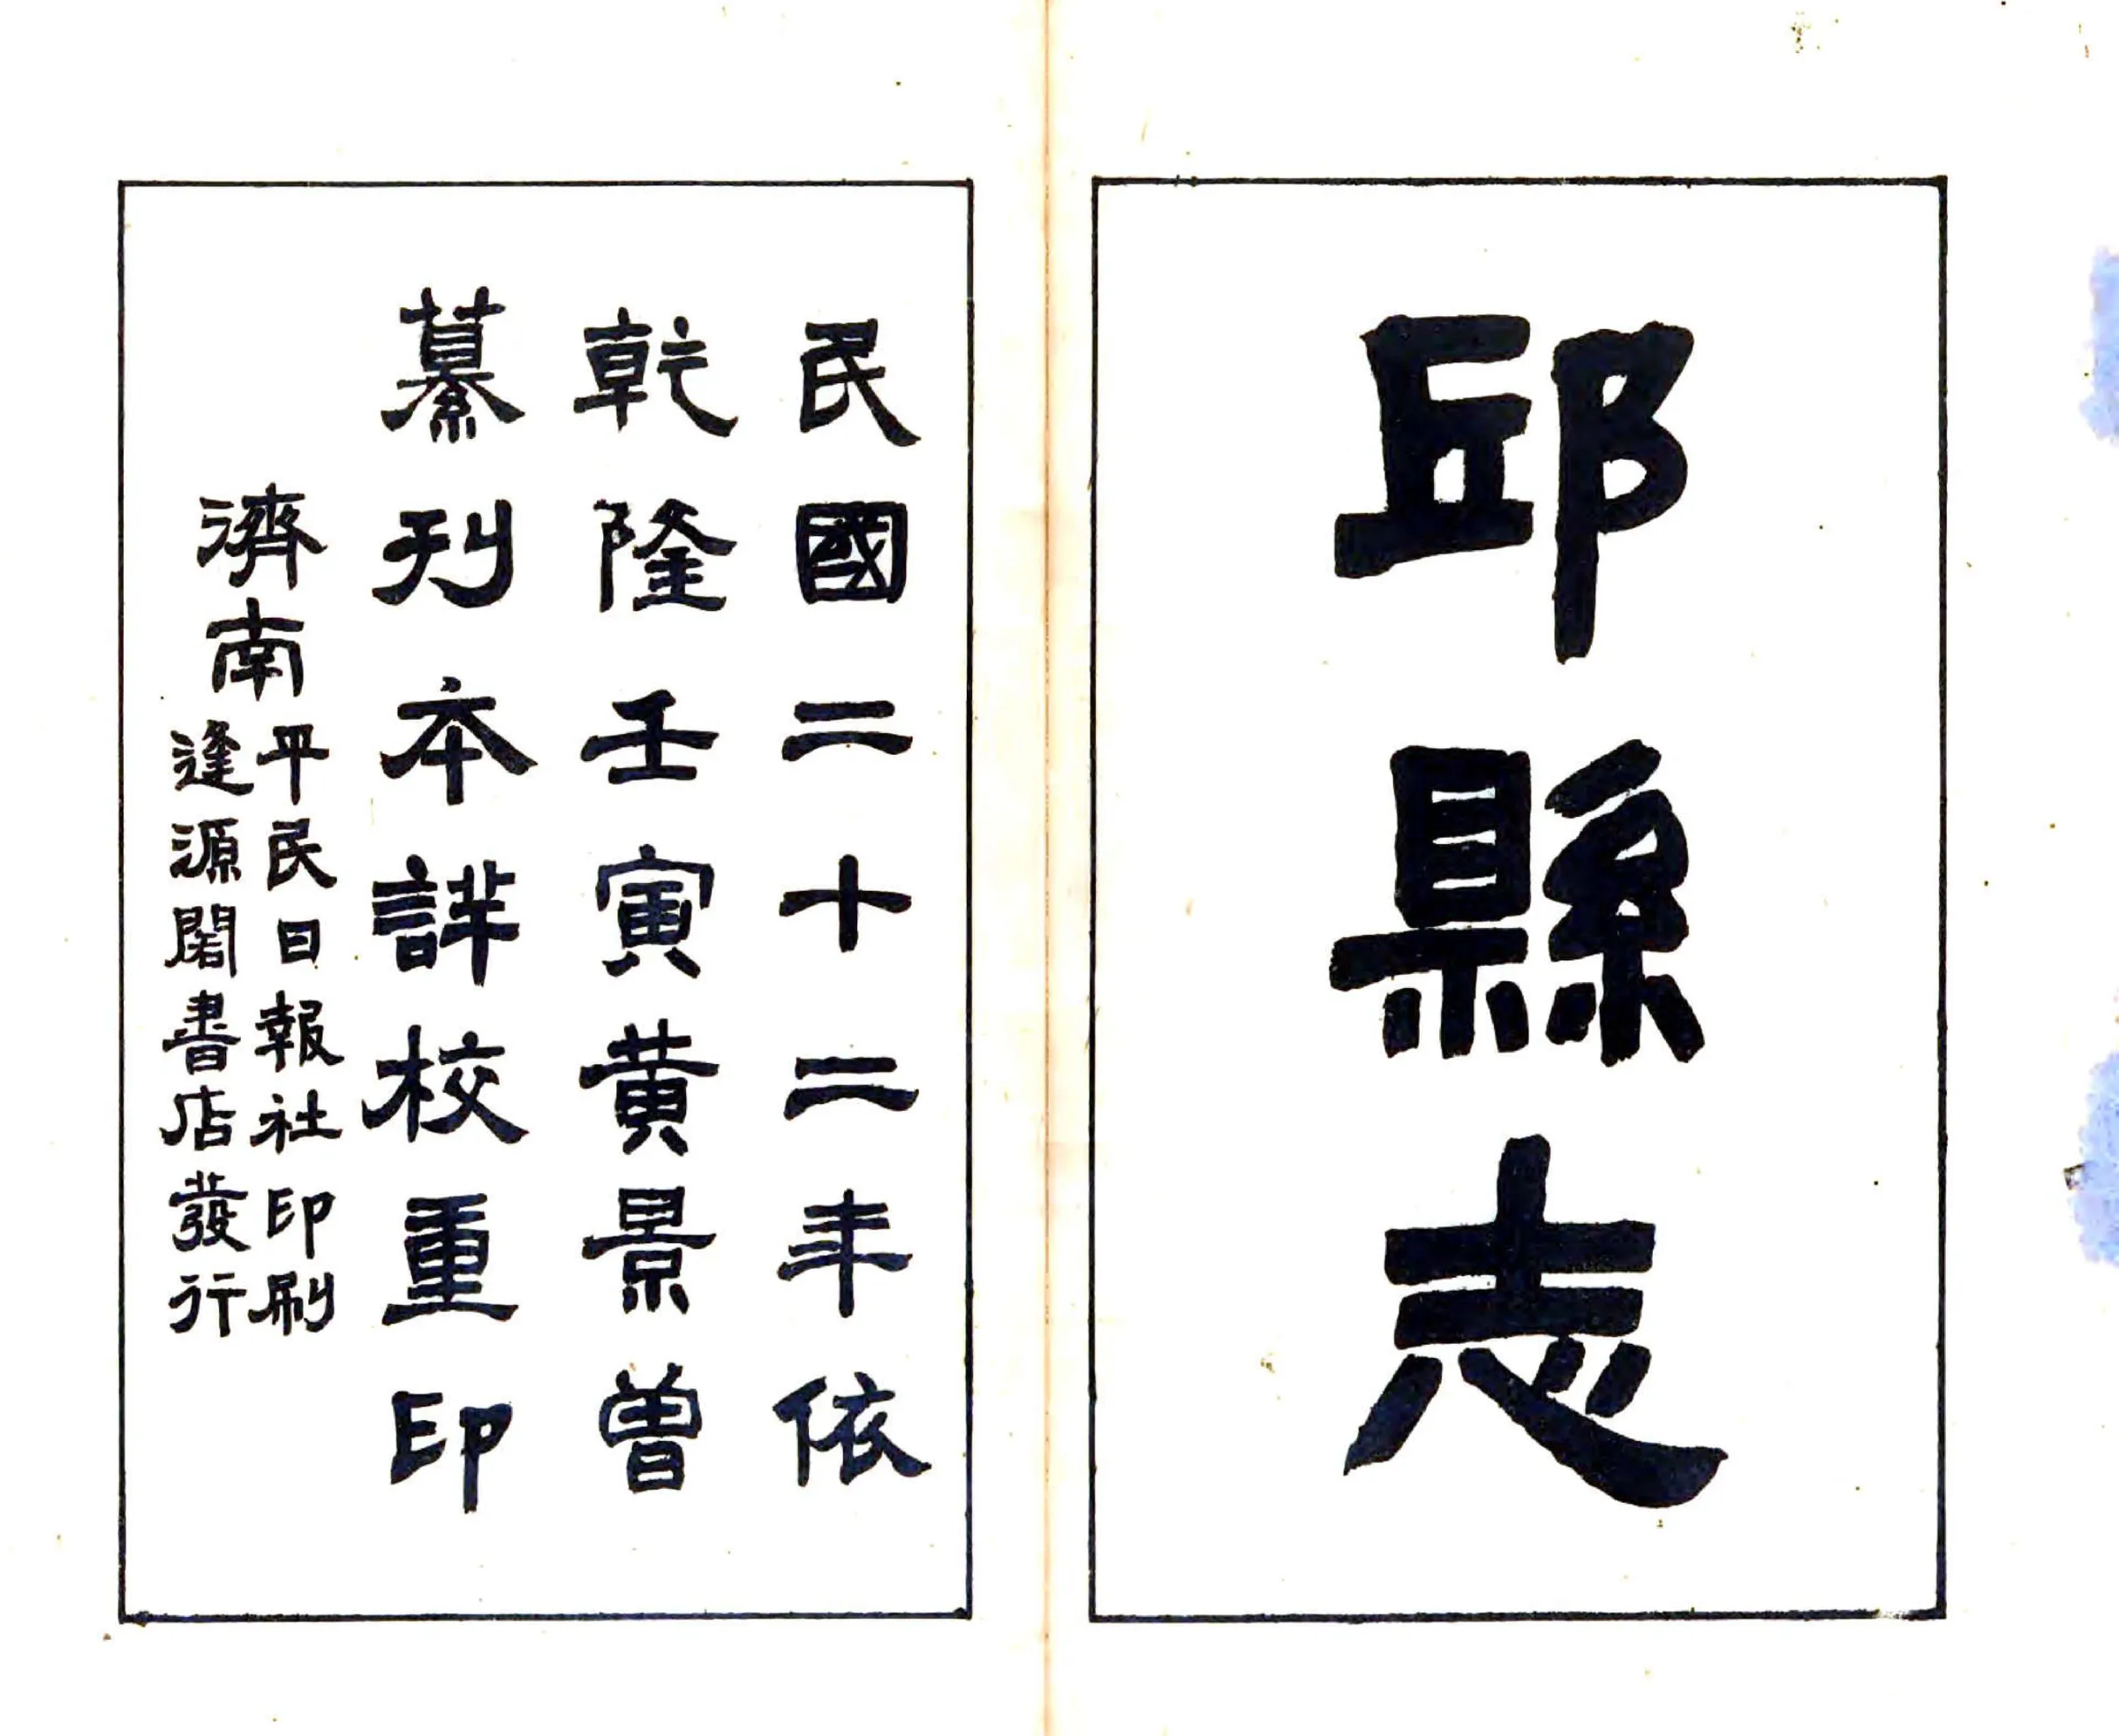 邱縣志
民國二十二年依
乾隆壬寅黄景曾
纂刊本詳校重印
濟南
平民日報社印刷
逢源閣書店發行